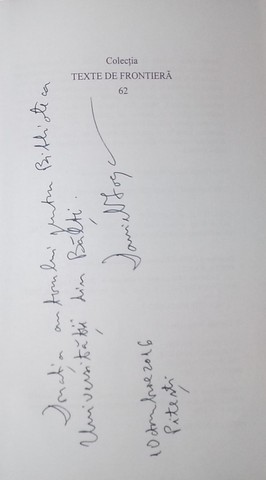 Colecția
TEXTE DE FRONTIERĂ
62
Donația autorului pentru Biblioteca
Universității din Bălți.
10 octombrie 2016
Pitești